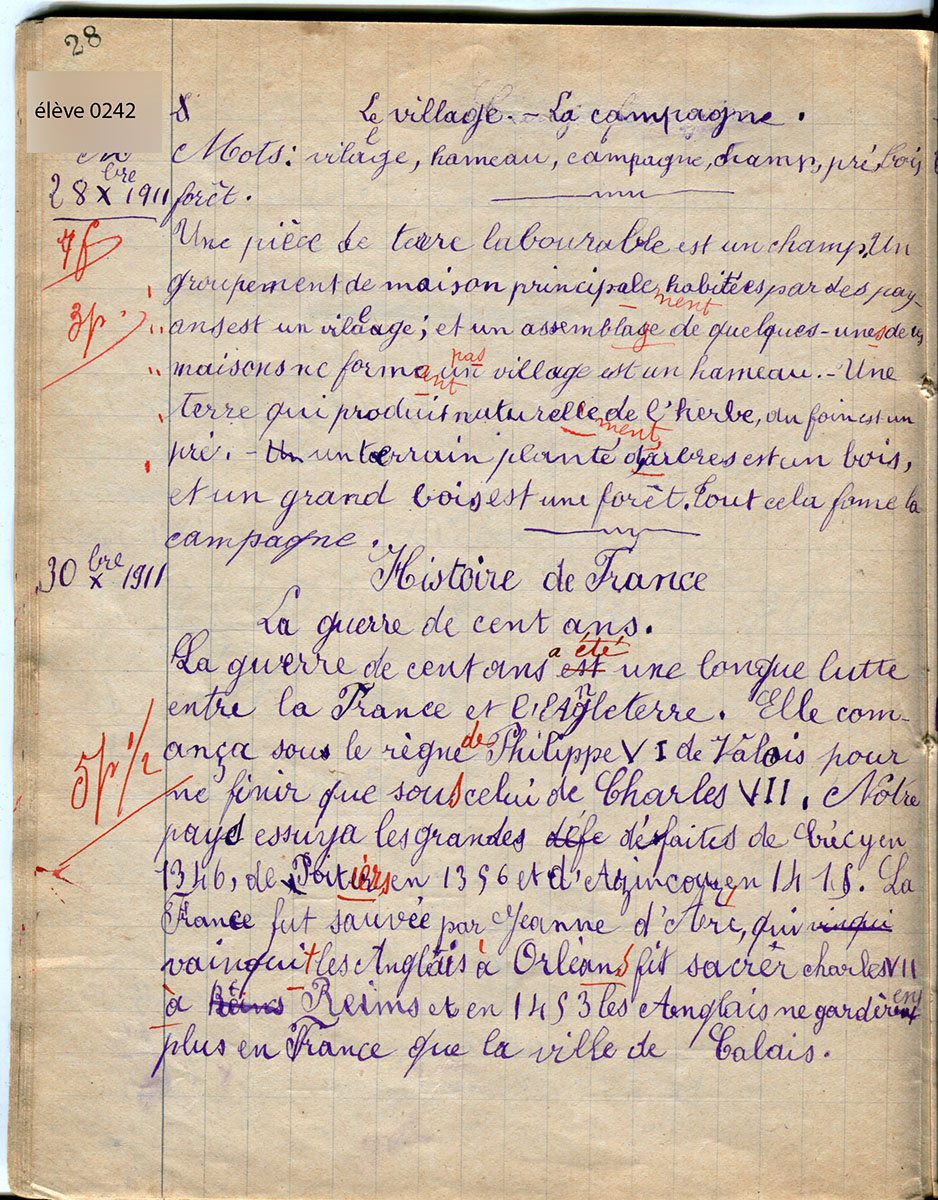 28
élève 0242
Le village. - La campagne.
Mots: village, hameau, campagne, champ, pré, bois
28 Xbre 1911 forêt.
Une pièce de terre labourable est un champ. Un
7f
groupement de maison principale habitées par des pay-
ment
3p
ans est un village; et un assemblage de quelques-unes de ces
pas
maisons ne forma un village est un hameau. - Une
ant
terre qui produis naturelle de l'herbe, du foin est un
ment
pré. - Un un terrain planté d'arbres est un bois,
et un grand bois est une forêt. Tout cela fome la
campagne.
30 Xbre 1911 Histoire de France
La guerre de cent ans.
a été
La guerre de cent ans est une longue lutte
entre la France et l'Angleterre. Elle com-
ança sous le règne de Philippe VI de Valois pour
5p 1/2
ne finir que sous celui de Charles VII. Notre
pays essuya les grandes défe défaites de Crécy en
1346, de Poitiers en 1356 et d'Azincourt en 1415. La
France fut sauvée par Jeanne d'Arc, qui vinqui
vainquit les Anglais à Orléans fit sacrer charles VII
à Reims et en 1453 les Anglais ne gardèrent
plus en France que la ville de Calais.